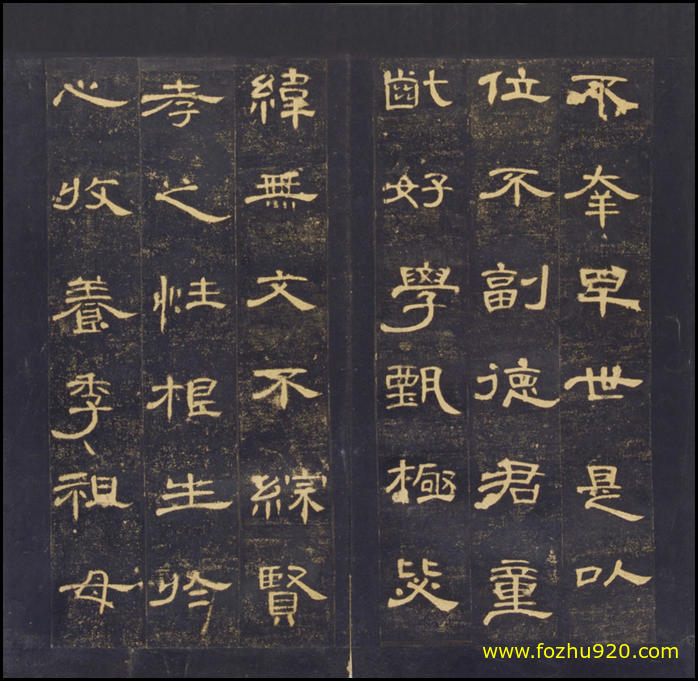 不幸早世是以
位不副德君童
齔好學甄極毖
緯無文不綜賢
孝之性根生於
心收養季祖母
www.fozhu920.com